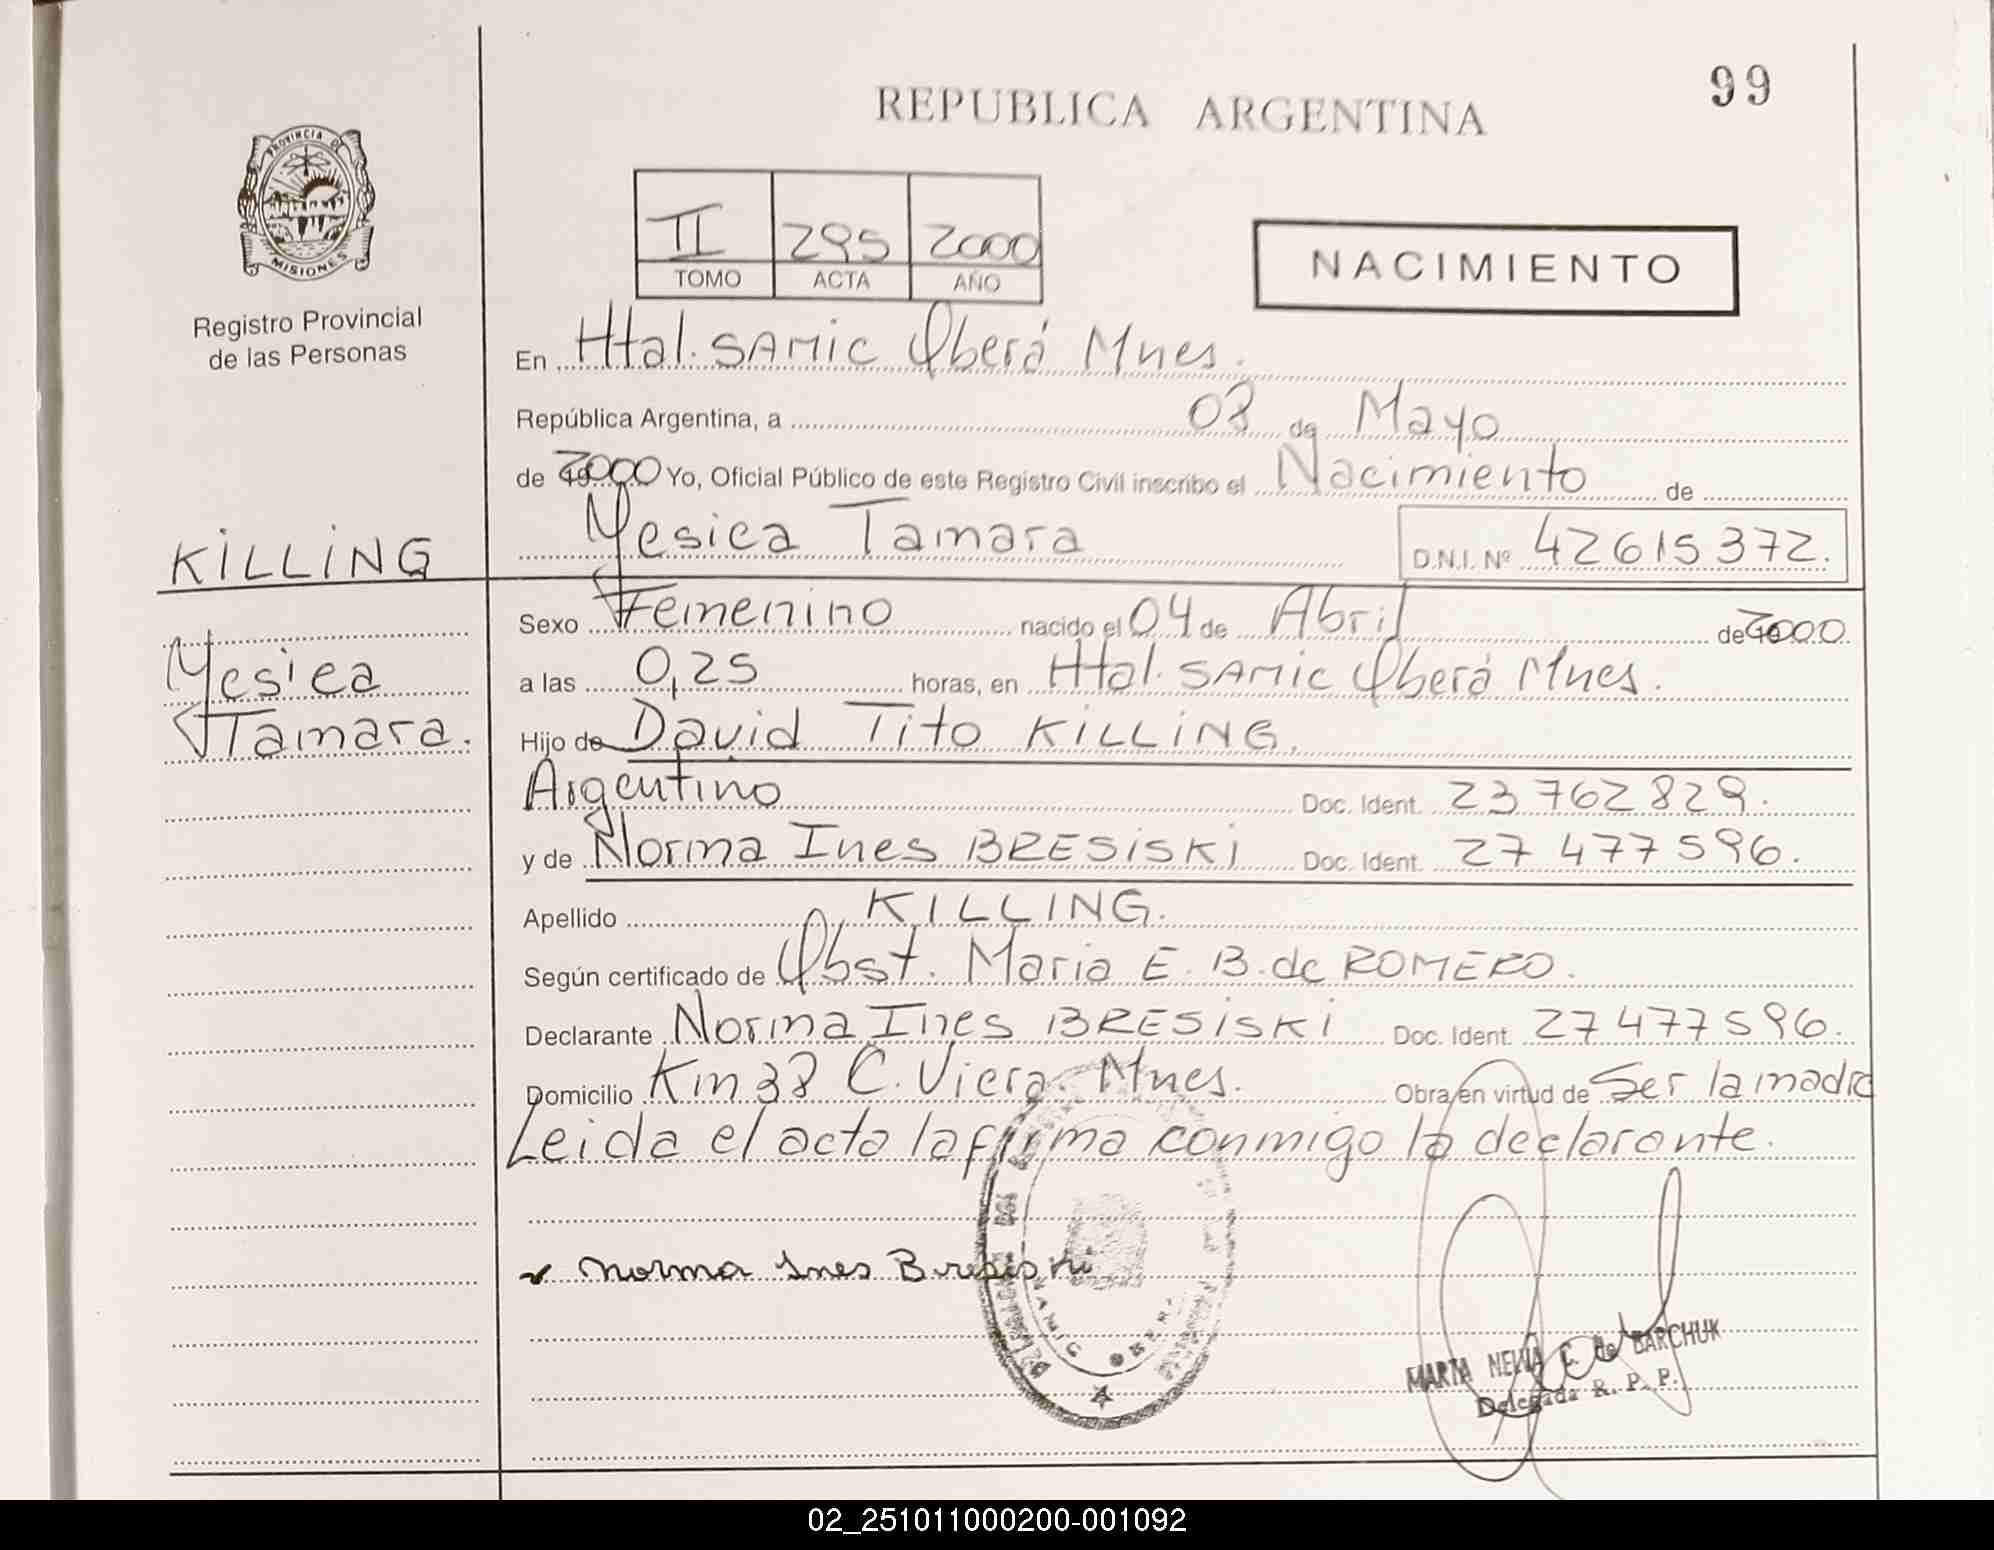 99
REPUBLICA ARGENTINA
PROVINCIA DE
MISIONES
Registro Provincial
de las Personas
II 295 2000
TOMO ACTA AÑO
NACIMIENTO
En Htal. SAMIC Oberá Mnes.
República Argentina, a 03 de Mayo
de 2000 Yo, Oficial Público de este Registro Civil inscribo el Nacimiento de
Yesica Tamara D.N.I. Nº 42615372.
KILLING
Yesica
Tamara.
Sexo Femenino nacido el 04 de Abril de 2000
a las 0,25 horas, en Htal. SAMIC Oberá Mnes.
Hijo de David Tito KILLING.
Argentino Doc. Ident. 23 762 829.
y de Norma Ines BRESiSKi Doc. Ident. 27 477 596.
Apellido KILLING.
Según certificado de Obst. Maria E. B. de ROMERO.
Declarante Norma Ines BRESiSKi Doc. Ident. 27 477 596.
Domicilio Km 38 C. Viera. Mnes. Obra en virtud de Ser la madre
Leida el acta la firma conmigo la declarante.
Norma Ines Bresiski
SAMIC OBERA
MARTA NELIA E. de BARCHUK
Delegada R. P. P.
02_251011000200-001092